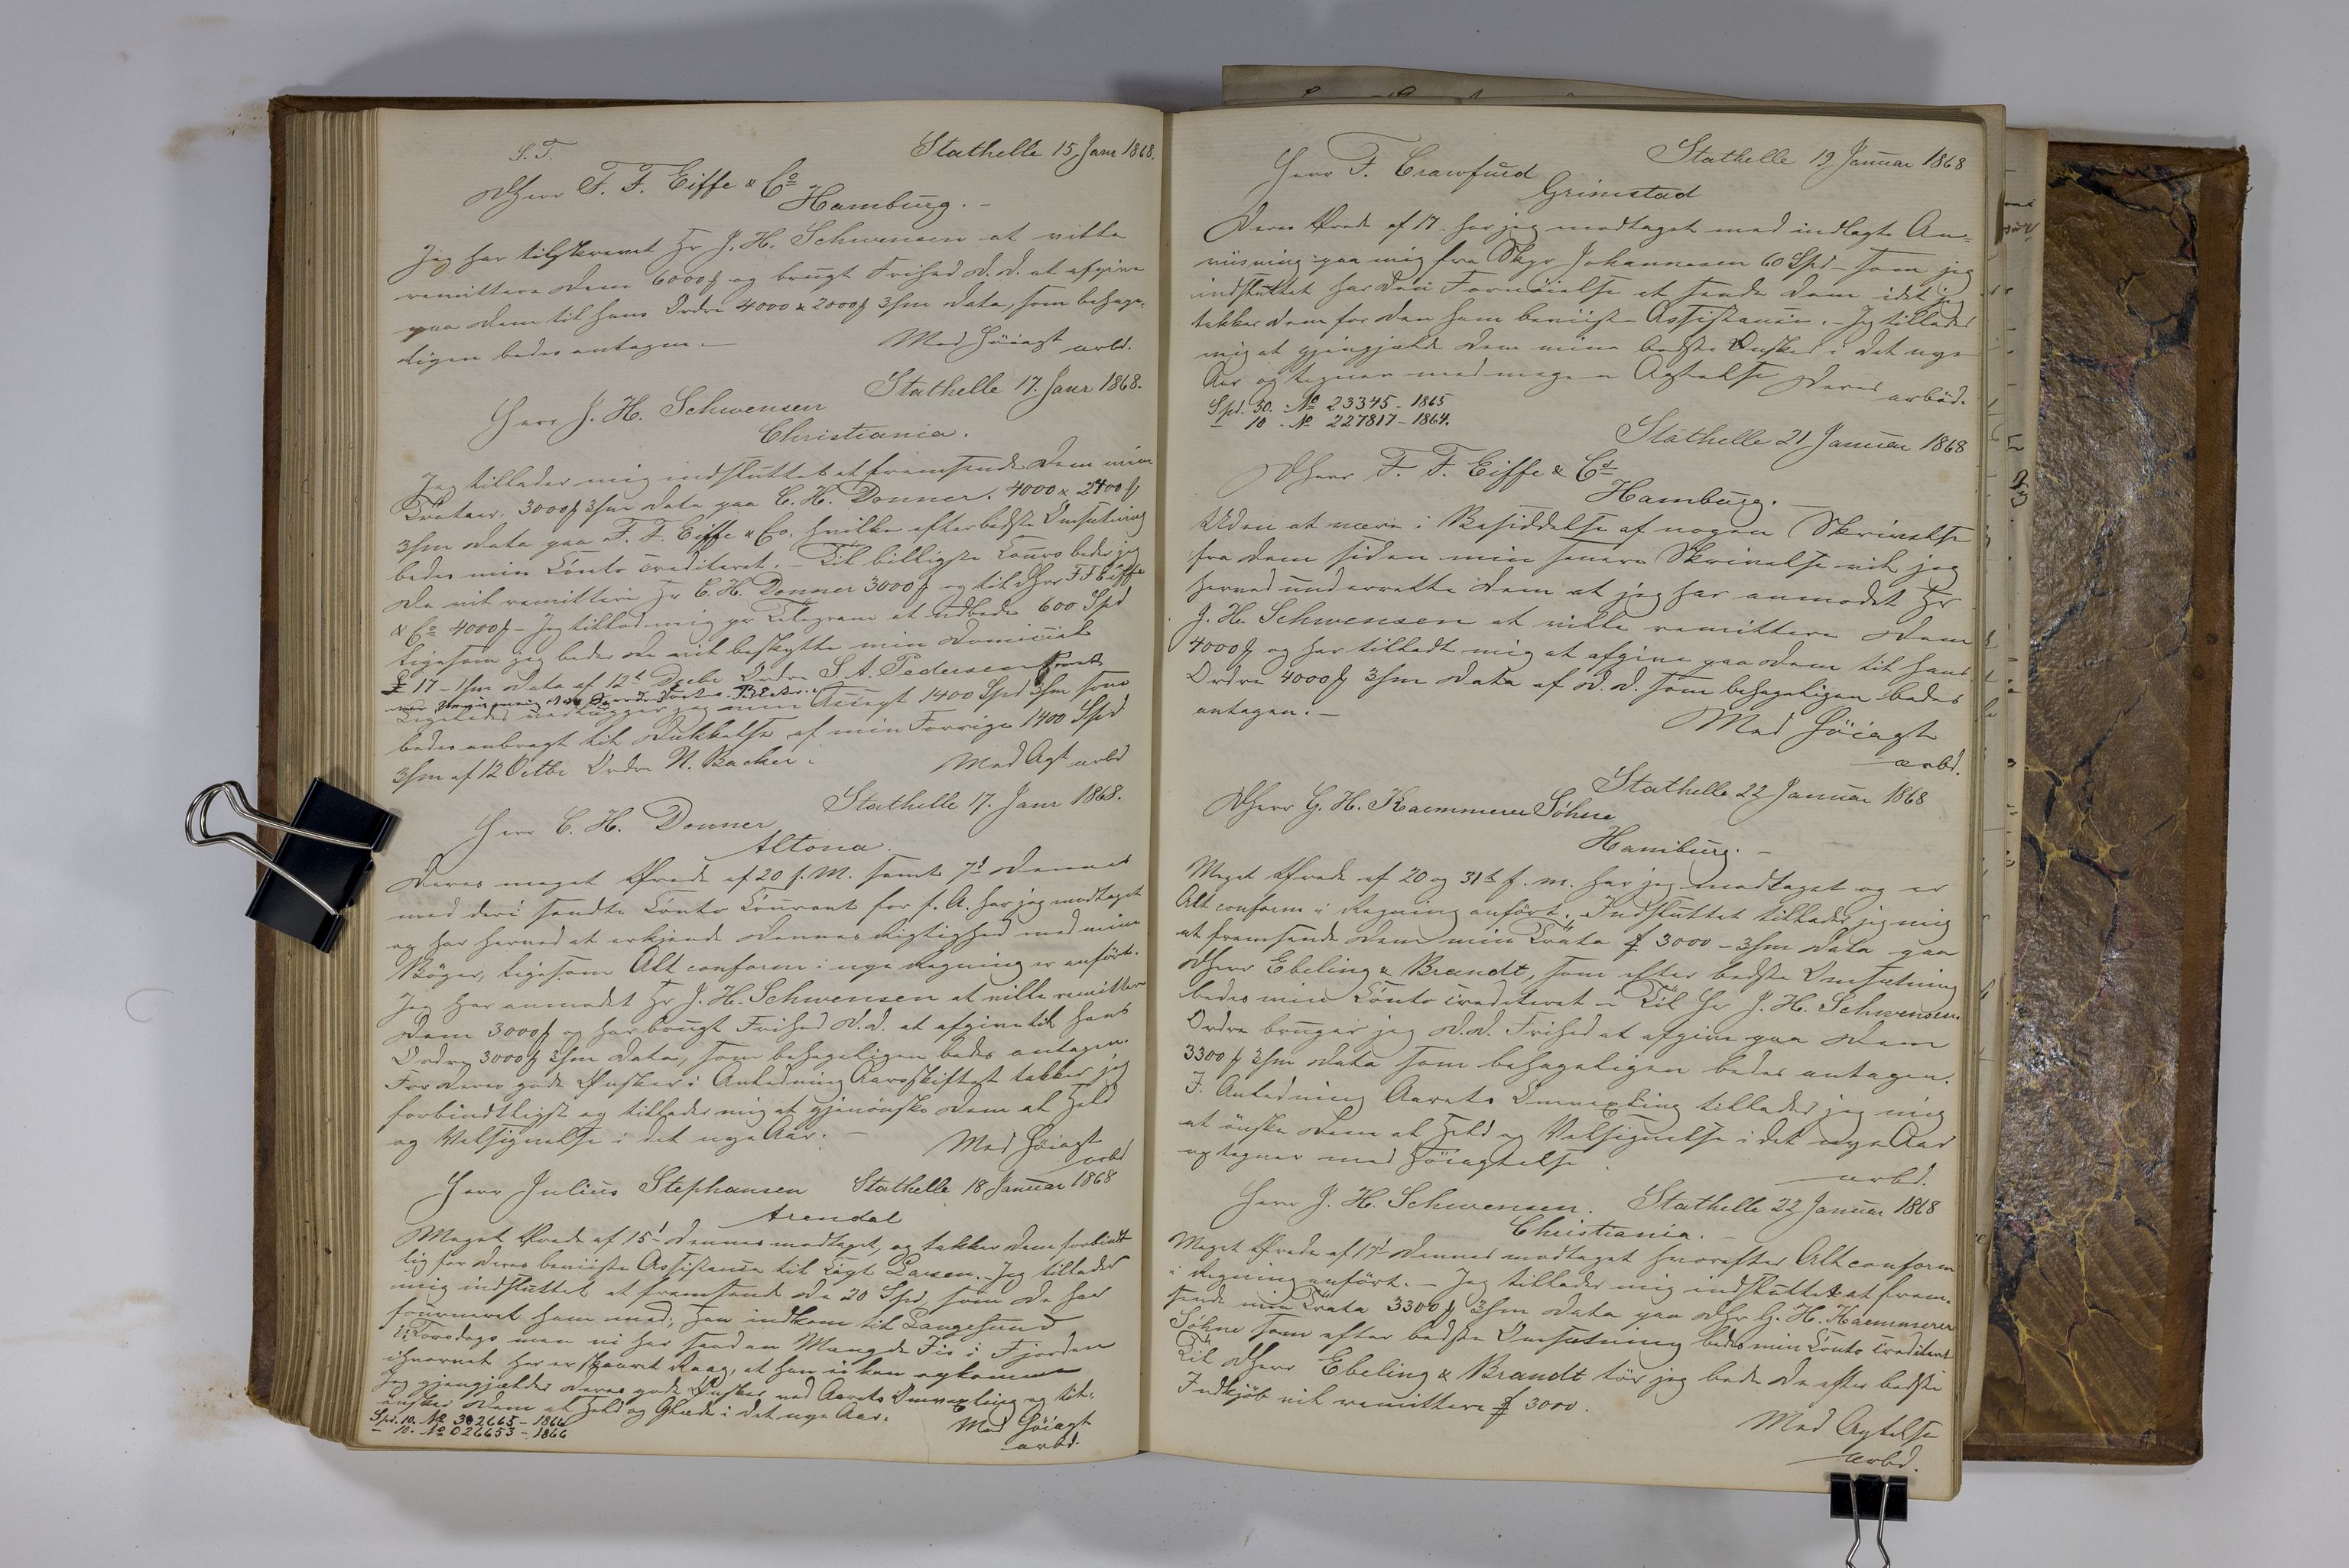 S. T.
Stathelle 15 Janr 1868.
DHerr F. F. Eiffe & Co
Hamburg. -
Jeg har tilskrevet Hr J. H. Schwensen at ville
remittere Dem 6000 og brugt Frihed D. D. at afgive
paa Dem til hans Ordre 4000 & 2000 3/m data, som behage-
ligen bedes antagen. -
Med Høiagt
arbd.
Stathelle 17. Janr 1868.
Herr J. H. Schwensen
Christiania.
Jeg tillader mig indsluttet at fremsende Dem min
Tratter. 3000 3/m data paa C. H. Donner. 4000 & 2400
3/m data paa F. F. Eiffe & Co. hvilke efter bedste Omsætning
bedes min Conto crediteret. - Til billigste Cours beder jeg
De vil remittere Hr C. H. Donner 3000 og til DHrr F F Eiffe
& Co 4000 - Jeg tillod mig pr Telegram at udbede 600 Spd
Ligesom jeg beder De vil beskytte min Domicial
17 - 1/m data af 12t Decbr Ordre S. A. Pedersen
Ligeledes vedlægger jeg min Accept 1400 Spd 3/m som
bedes anbragt til Dækkelse af min Forrige 1400 Spd
3/m af 12 Octbr Ordre N. Backer.
Med Agt arbd
Stathelle 17. Janr 1868.
Herr C. H. Donner
Altona.
Deres meget Ærede af 20 f. M. samt 7d Dennes
med deri sendte Conto Courant for f. A. har jeg modtaget
og har herved at erkjende Dennes Rigtighed med mine
Bøger, ligesom Alt conform i nye Regning er anført.
Jeg har anmodet Hr J. H. Schwensen at ville remittere
Dem 3000 og har brugt Frihed D. D. at afgive til hans
Ordre 3000 3/m data, som behageligen bedes antagen.
For Deres gode Ønsker i Anledning Aarsskiftet takker jeg
forbindtligst og tillader mig at gjenønske Dem al Held
og Velsignelse i det nye Aar. -
Med Høiagt
arbd
Herr Julius Stephansen Stathelle 18 Januar 1868
Arendal
Meget Ærede af 15d Dennes modtaget, og takker Dem forbindt-
lig for Deres beviiste Assistance til Capt Larsen. Jeg tillader
mig indsluttet at fremsende De 20 Spd, som De har
fourneret ham med; han indkom til Langesund
i Torsdags men vi har saadan Mængde Iis i Fjorden
ihvorvel her er skaaret Raag, at han ei kan opkomme
Jeg gjengjælder Deres gode Ønsker ved Aarets Omvexling og til-
ønsker Dem al Held og Glæde i det nye Aar.
Med Høiagt
arbd.
Spd. 10. No 302665 - 1866
- 10. No 026653 - 1866
Stathelle 19 Januar 1868
Herr F. Crawfurd
Grimstad
Deres Ærede af 17. har jeg modtaget med indlagte An-
viisning paa mig fra Skpr Johannesen 60 Spd - som jeg
indsluttet har den Fornøielse at sende Dem idet jeg
takker Dem for den ham beviiste Assistance. - Jeg tillader
mig at gjengjælde Dem mine bedste Ønsker i det nye
Aar og tegner med megen Agtelse Deres
arbød.
Spd. 50. No 23345 - 1865
- 10. No 227817 - 1864.
Stathelle 21 Januar 1868
DHerr F. F. Eiffe & Co
Hamburg. -
Uden at være i Besiddelse af nogen Skrivelse
fra Dem siden min senere Skrivelse vil jeg
herved underrette Dem at jeg har anmodet Hr
J. H. Schwensen at ville remittere Dem
4000 og har tilladt mig at afgive paa Dem til hans
Ordre 4000 3/m data af D. D. som behageligen bedes
antagen. -
Med Høiagt
arbd.
Stathelle 22 Januar 1868
DHerr G. H. Kaemmerer Söhne
Hamburg. -
Meget Ærede af 20 og 31te f. m. har jeg modtaget og er
Alt conform i Regning anført. Indsluttet tillader jeg mig
at fremsende Dem min Tratte £ 3000 - 3/m data paa
DHerr Ebeling & Brandt, som efter bedste Omsætning
bedes min Conto crediteret - Til Hr J. H. Schwensen
Ordre bruger jeg D. D. Frihed at afgive paa Dem
3300 3/m data som behageligen bedes antagen.
I Anledning Aarets Omvexling tillader jeg mig
at ønske Dem al Held og Velsignelse i det nye Aar
og tegner med Høiagtelse
arbd.
Herr J. H. Schwensen. Stathelle 22 Januar 1868
Christiania. -
Meget Ærede af 17d Dennes modtaget hvorefter Alt conform
i Regning anført. - Jeg tillader mig indsluttet at frem-
sende min Tratta 3300 3/m data paa DHr G. H. Kaemmerer
Söhne som efter bedste Omsætning bedes min Conto crediteret
Til DHerr Ebeling & Brandt tør jeg bede De efter bedste
Indkjøb vil remittere £ 3000.
Med Agtelse
arbd.